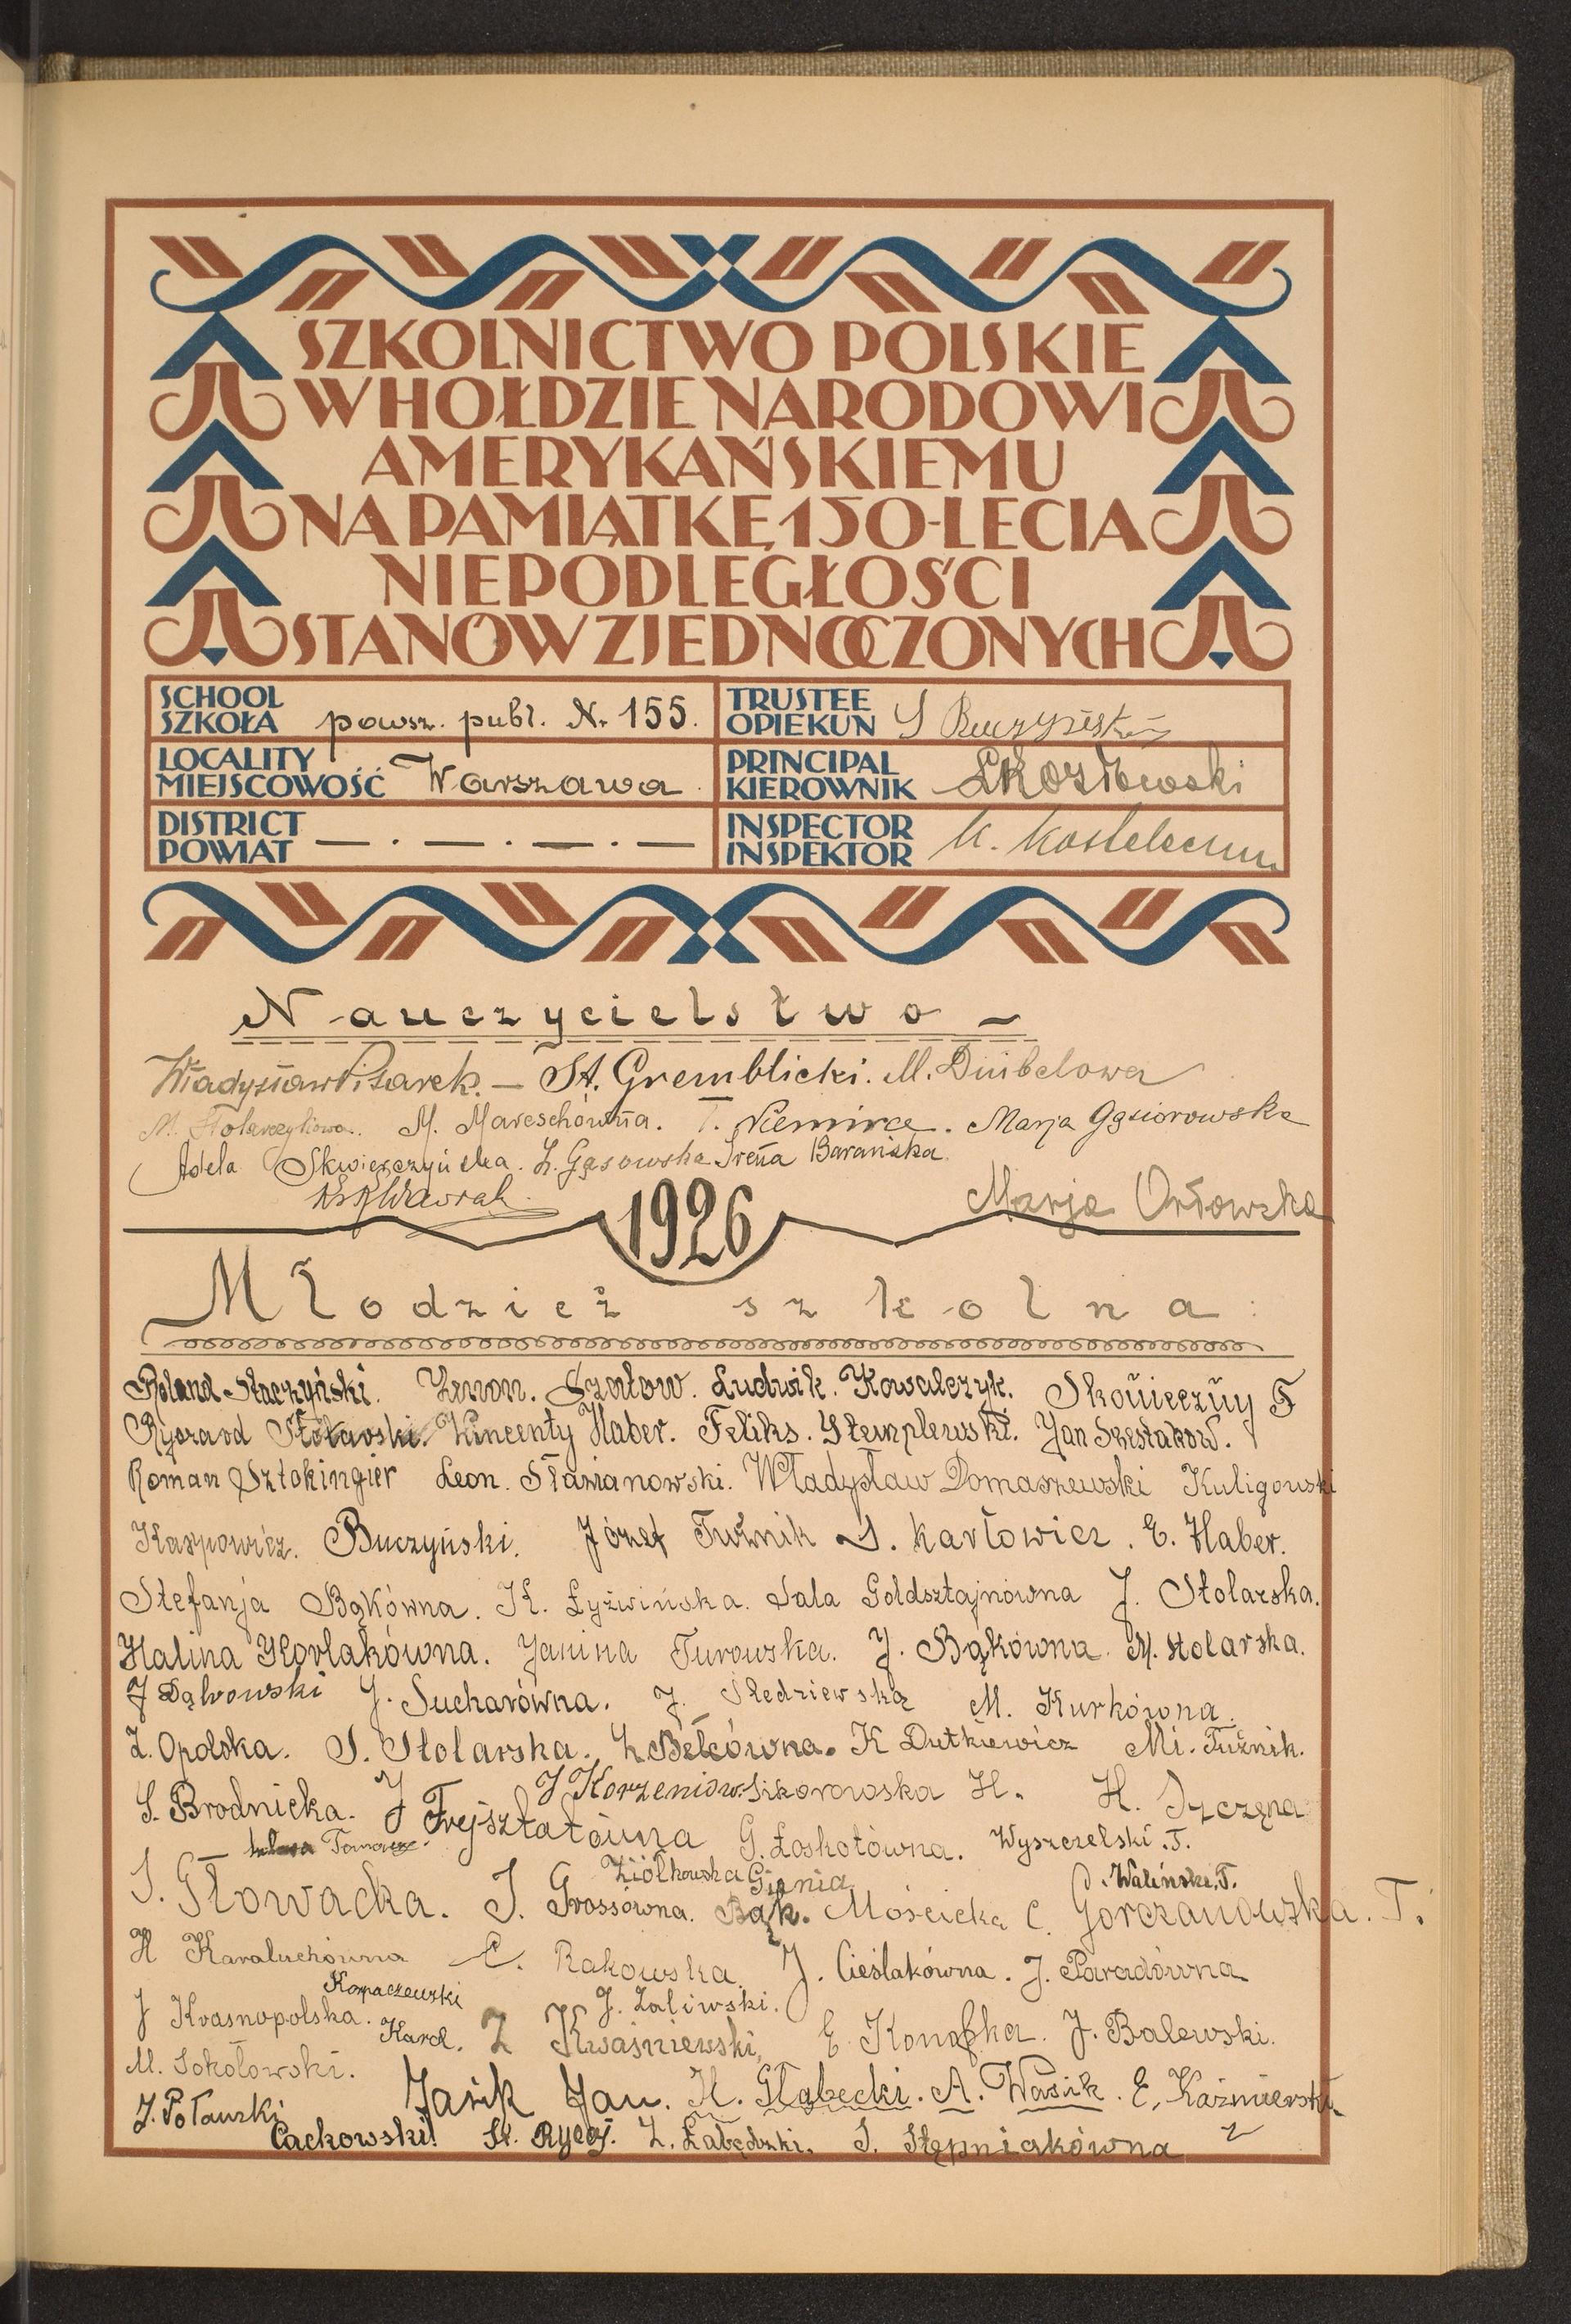 SZKOLNICTWO POLSKIE
W HOŁDZIE NARODOWI
AMERYKAŃSKIEMU
NA PAMIĄTKĘ 150-LECIA
NIEPODLEGŁOŚCI
STANÓW ZJEDNOCZONYCH
SCHOOL
SZKOŁA powsz. publ. Nr 155.
TRUSTEE
OPIEKUN
LOCALITY
MIEJSCOWOŚĆ Warszawa
PRINCIPAL
KIEROWNIK Kozłowski
DISTRICT
POWIAT — . — . — . —
INSPECTOR
INSPEKTOR
Nauczycielstwo –
Władysław Pisarek. – St. Gremblicki. M. Dübelowa
M. Stolarczykowa. M. Mareschówna. T. Niemirce. Marja Gąsiorowska
Adela Skwierczyńska. Z. Gąsowska Irena Barańska
Marja Orłowska
1926
Młodzież szkolna:
Roland Staczyński. Zenon. Szatow. Ludwik. Kowalczyk. Skonieczny F
Ryszard Stolarski. Wincenty Haber. Feliks. Stemplewski. Jan Szestakow.
Roman Sztokingier Leon. Sławianowski. Władysław Domaszewski Kuligowski
Karpowicz. Buczyński. Józef Tuźnik S. Karłowicz. E. Haber.
Stefanja Bąkówna. K. Łyżwińska. Sala Goldsztajnówna J. Stolarska.
Halina Gorlakówna. Janina Turowska. J. Bąkówna. M. Stolarska.
J Dąbrowski J. Sucharówna. J. Śledziewska M. Kurkówna.
Z. Opolska. S. Stolarska. Z. Belcówna. K Dutkiewicz Mi. Tuźnik.
J Korzeniow. Sikorowska H. H. Szczęna
S. Brodnicka. J Frejsztatówna G. Łoskotówna. Wyszczelski. T.
Tomasz.
Ziółkowska Gienia Waliński. T.
S. Głowacka. J. Grossówna. Bąk. Mościcka C. Gorczanowska. T.
H Karaluchówna C. Rakowska. J. Cieślakówna. J. Paradówna
Kopaczewski J. Zaliwski.
J Krasnopolska. Karol. Z Kwaśniewski, E Konopka. J. Balewski.
M. Sokołowski.
Jasik Jan. H. Głąbecki. A. Wasik. E. Kaźmierski
J. Połauski
Cackowski! St. Rycaj. Z. Łabędzki. S. Stępniakówna